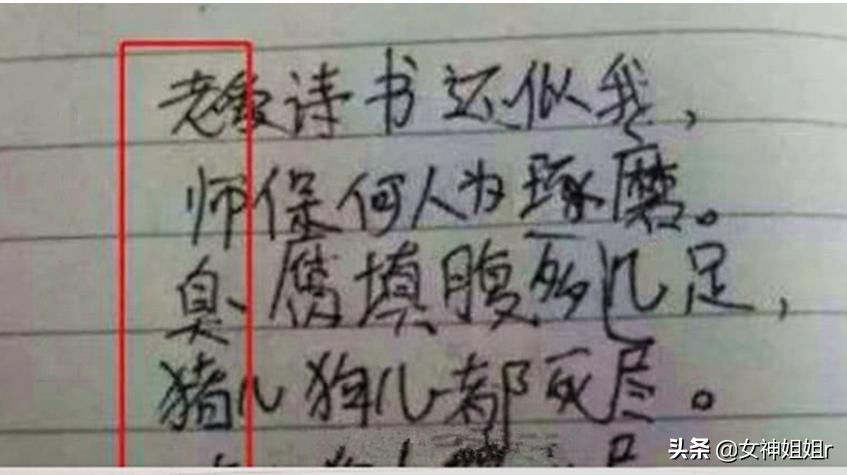 老爱诗书还似我，
师保何人为琢磨。
臭腐填腹多几足，
猪儿狗儿都死尽。
头条 @女神姐姐r